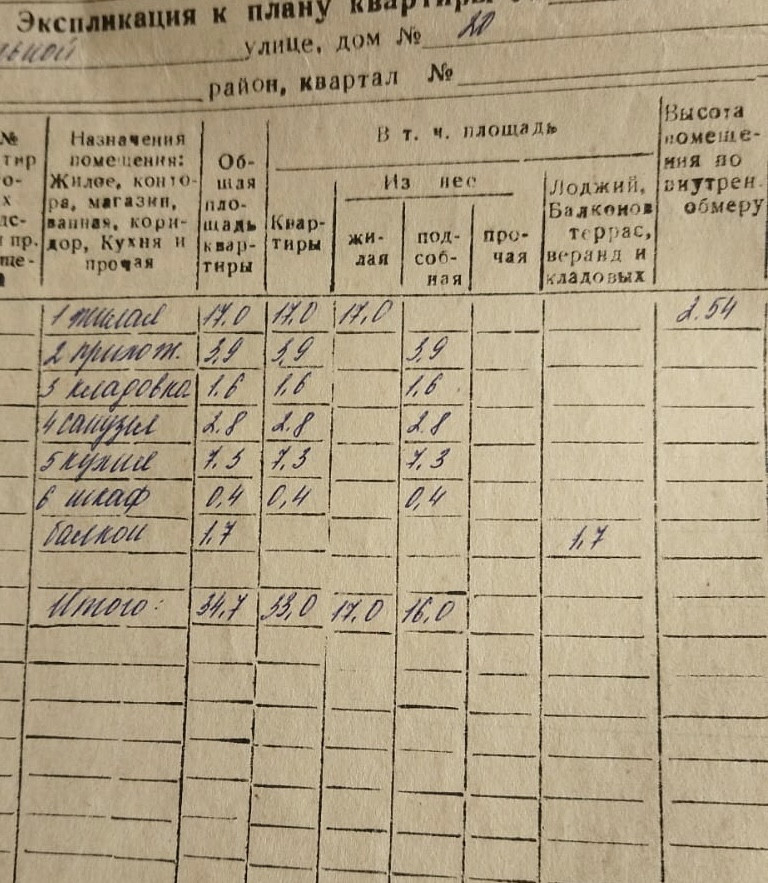 Экспликация к плану квартиры
улице, дом № 20
район, квартал №
№
Назначения помещения: Жилое, конто-
ра, магазин, ванная, кори-
дор, Кухня и прочая
Об-
щая
пло-
щадь
квар-
тиры
В т. ч. площадь
Квар-
тиры
Из нее
жи-
лая
под-
соб-
ная
про-
чая
Лоджий,
Балконов
террас,
веранд и
кладовых
Высота
помеще-
ния по
внутрен.
обмеру
1 жилая 17,0 17,0 17,0 2.54
2 прихож. 3,9 3,9 3,9
3 кладовка 1,6 1,6 1,6
4 санузел 2.8 2.8 2.8
5 кухня 7,3 7,3 7,3
6 шкаф 0,4 0,4 0,4
балкон 1,7 1,7
Итого: 34,7 33,0 17,0 16,0